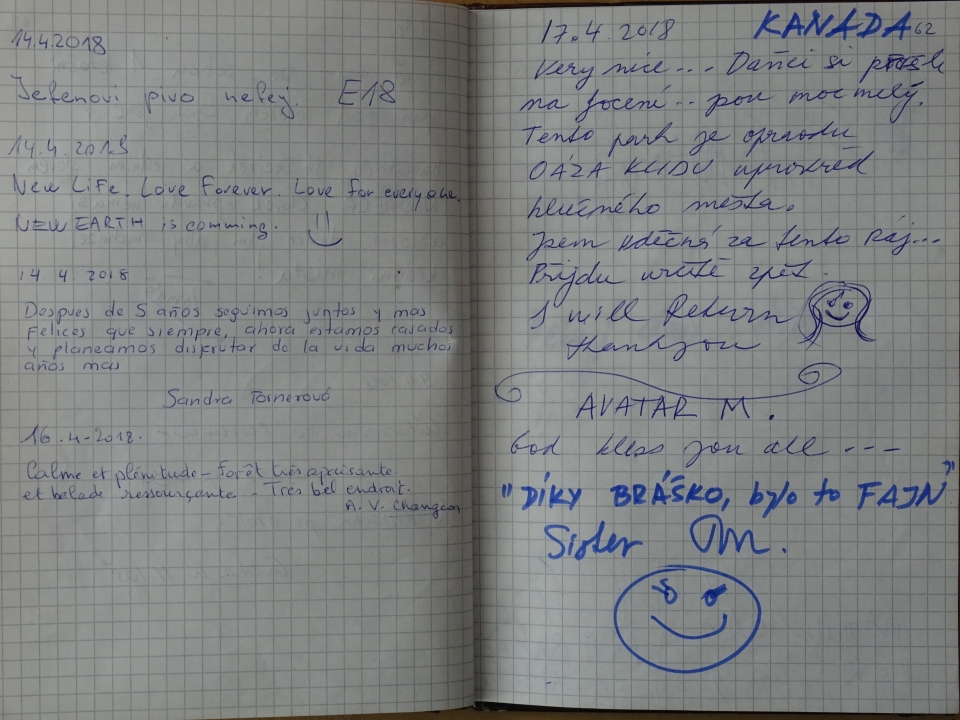 14.4.2018
pivo E18
14.4.2018
New Life. Love Forever. Love for everyone.
NEW EARTH is comming.
14 4 2018
Despues de 5 años seguimos juntos y mas
felices que siempre, ahora estamos casados
y planeamos disfrutar de la vida muchos
años mas
Sandra
16.4-2018.
Calme et plénitude - Forêt très apaisante
et balade ressourçante - Très bel endroit.
A. V.
17.4.2018 KANADA 62
Very nice... si
na focení..
Tento park je opravdu
OÁZA KLIDU uprostřed
hlučného města.
Jsem vděčná za tento Ráj...
Přijdu určitě zpět.
I will Return
thank you
AVATAR M.
God bless you all ---
"DÍKY BRÁŠKO, bylo to FAJN"
Sister M.